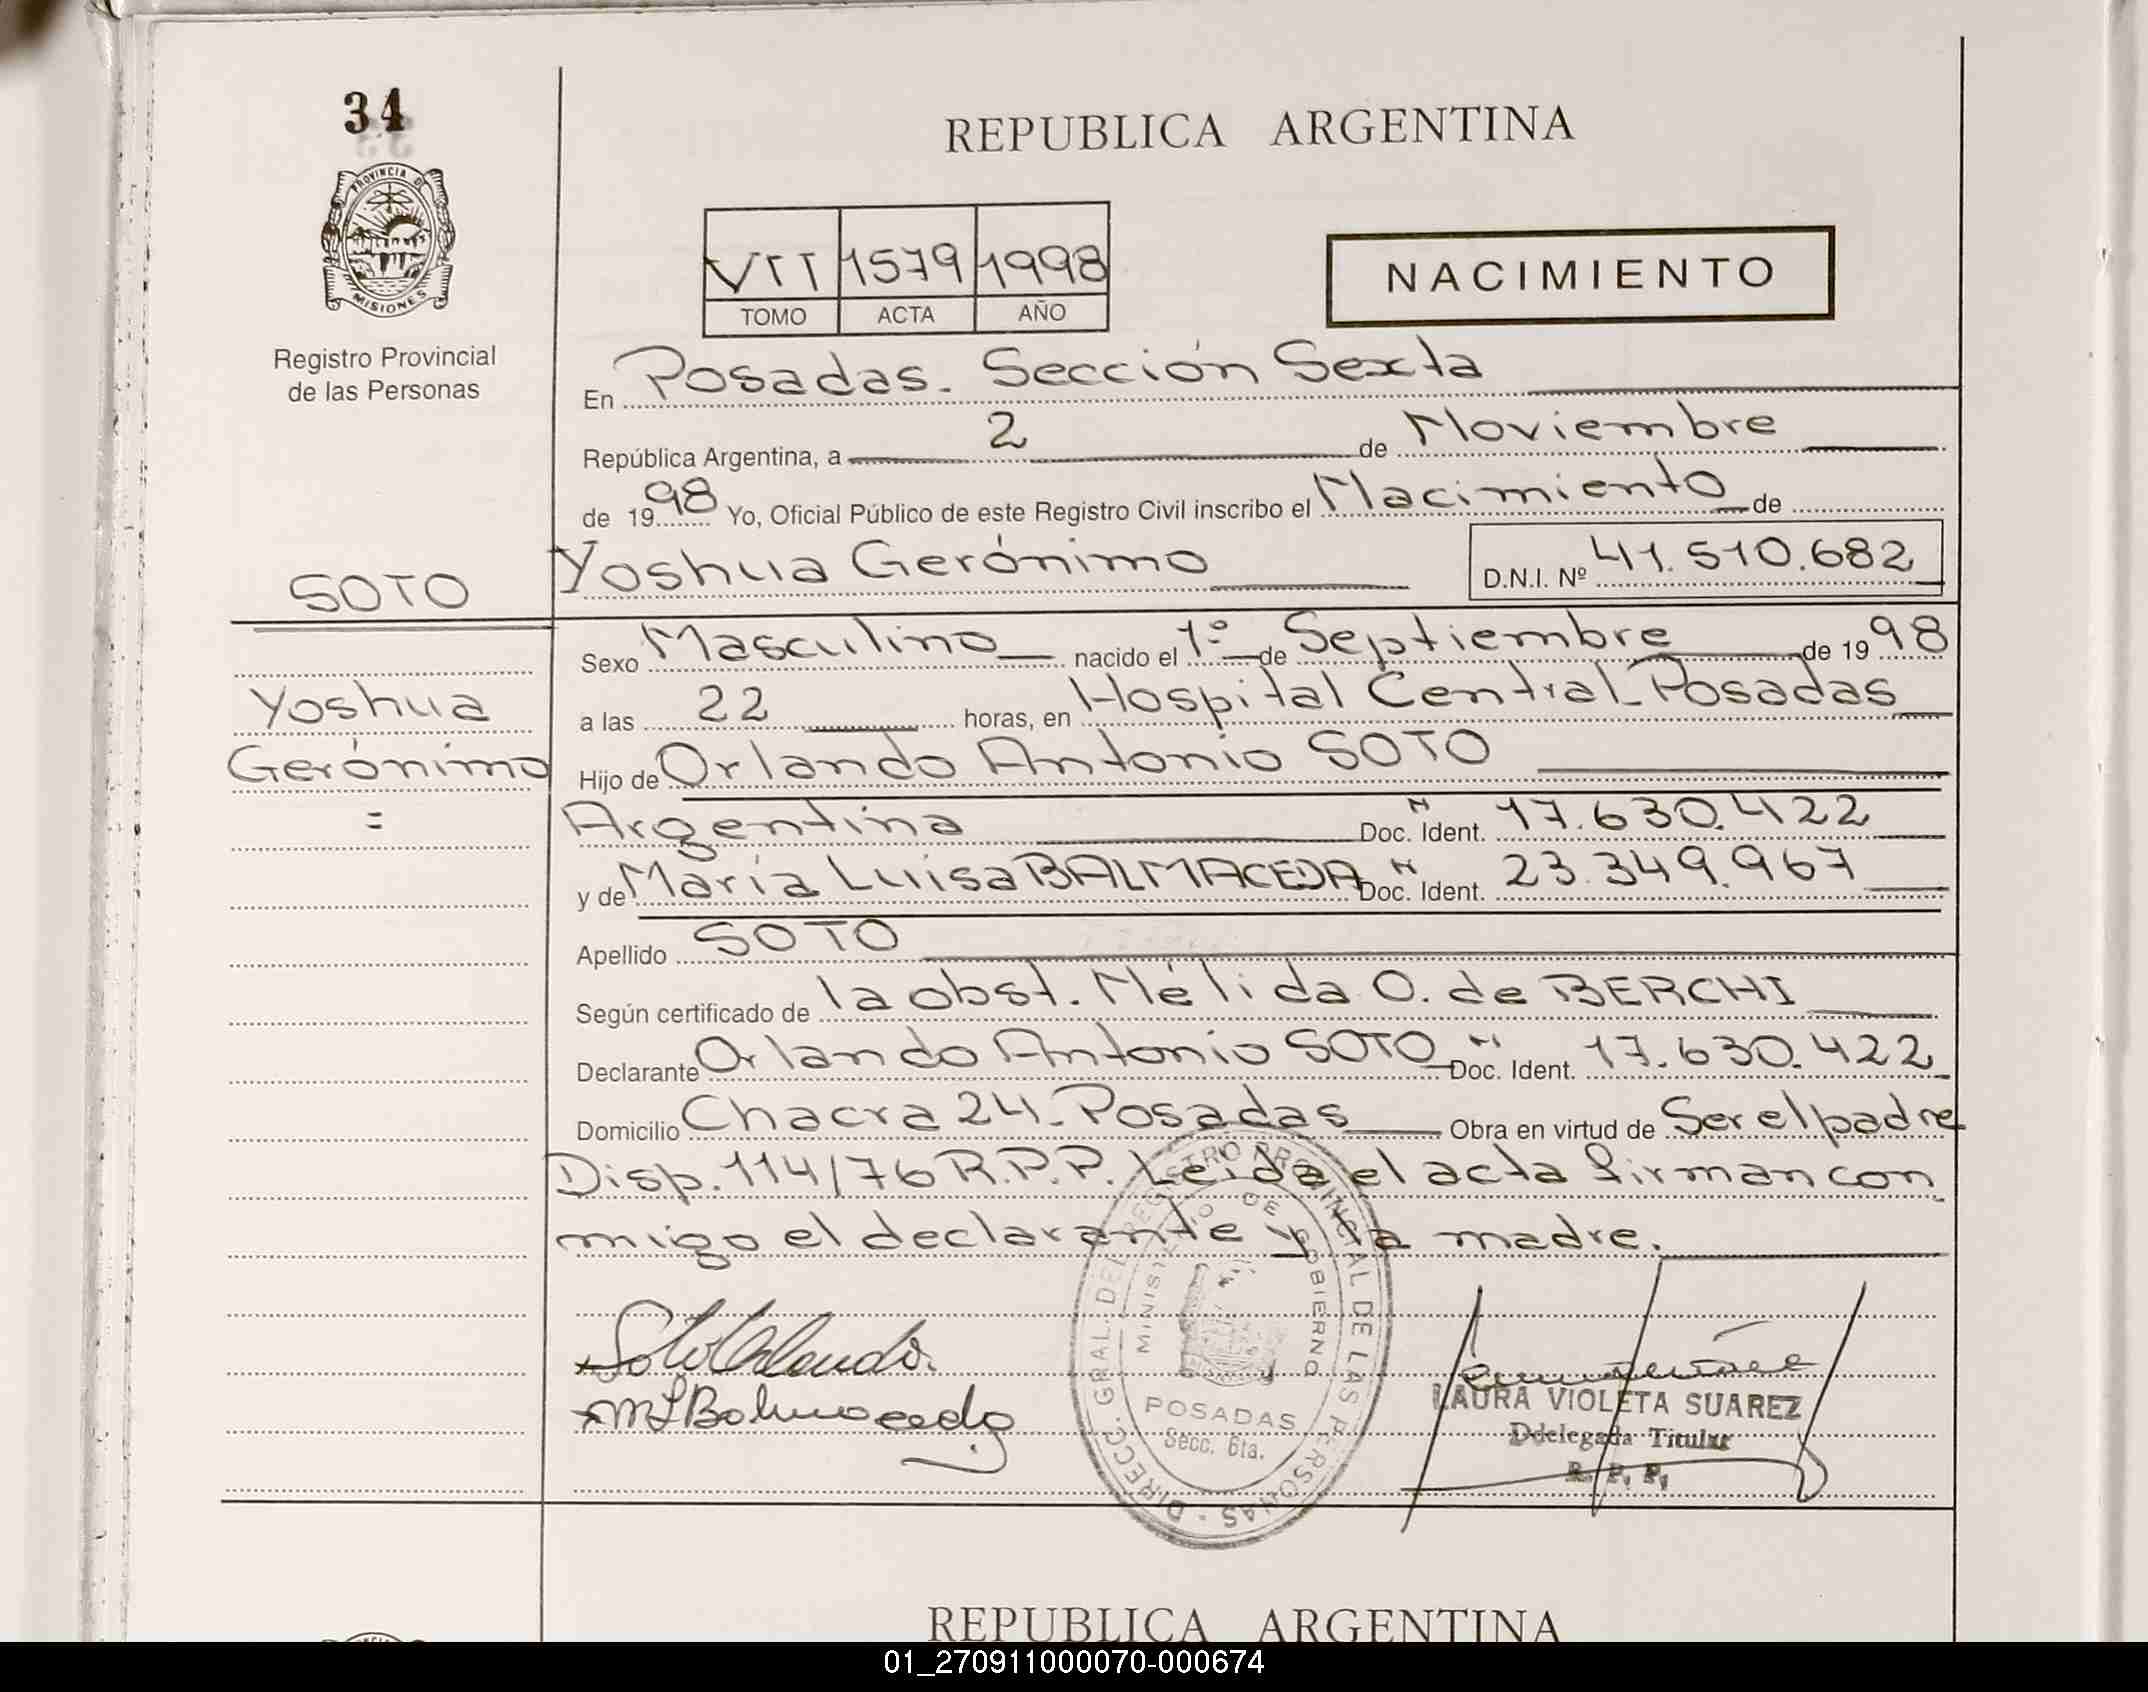 34
REPUBLICA ARGENTINA
PROVINCIA DE
MISIONES
Registro Provincial
de las Personas
VII 1579 1998
TOMO ACTA AÑO
NACIMIENTO
En Posadas. Sección Sexta
República Argentina, a 2 de Noviembre
de 1998 Yo, Oficial Público de este Registro Civil inscribo el Nacimiento de
Yoshua Gerónimo D.N.I. Nº 41.510.682
SOTO
Yoshua
Gerónimo
=
Sexo Masculino nacido el 1º de Septiembre de 1998
a las 22 horas, en Hospital Central_Posadas
Hijo de Orlando Antonio SOTO
Argentina Doc. Ident. N 17.630.422
y de María Luisa BALMACEDA Doc. Ident. N 23.349.967
Apellido SOTO
Según certificado de la obst. Nélida O. de BERCHI
Declarante Orlando Antonio SOTO Doc. Ident. N 17.630.422
Domicilio Chacra 24_Posadas Obra en virtud de Ser el padre
Disp. 114/76 R.P.P. Leída el acta firman con
migo el declarante y la madre.
Soto Orlando.
M L Balmaceda
DIRECC. GRAL. DEL REGISTRO PROVINCIAL DE LAS PERSONAS
MINISTERIO DE GOBIERNO
POSADAS
Secc. 6ta.
LAURA VIOLETA SUAREZ
Ddelegada Titular
R. P. P.
REPUBLICA ARGENTINA
01_270911000070-000674